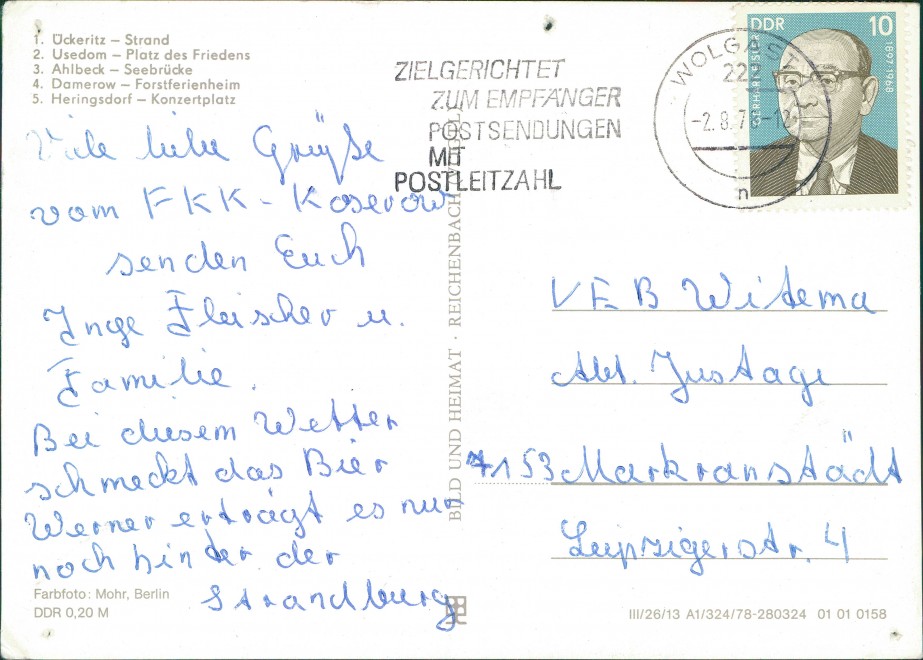 1. Ückeritz – Strand
2. Usedom – Platz des Friedens
3. Ahlbeck – Seebrücke
4. Damerow – Forstferienheim
5. Heringsdorf – Konzertplatz
Viele liebe Grüße
vom FKK-Koserow
senden Euch
Inge Fleischer u.
Familie.
Bei diesem Wetter
schmeckt das Bier
Werner erträgt es nur
noch hinder der
Strandburg
Farbfoto: Mohr, Berlin
DDR 0,20 M
BILD UND HEIMAT · REICHENBACH
ZIELGERICHTET
ZUM EMPFÄNGER
POSTSENDUNGEN
MIT
POSTLEITZAHL
WOLGAST
22
-2.8.7 -12
n
DDR 10
GERHART EISLER
1897-1968
VEB Witema
Abt. Justage
7153 Markranstädt
Leipzigerstr. 4
III/26/13 A1/324/78-280324 01 01 0158